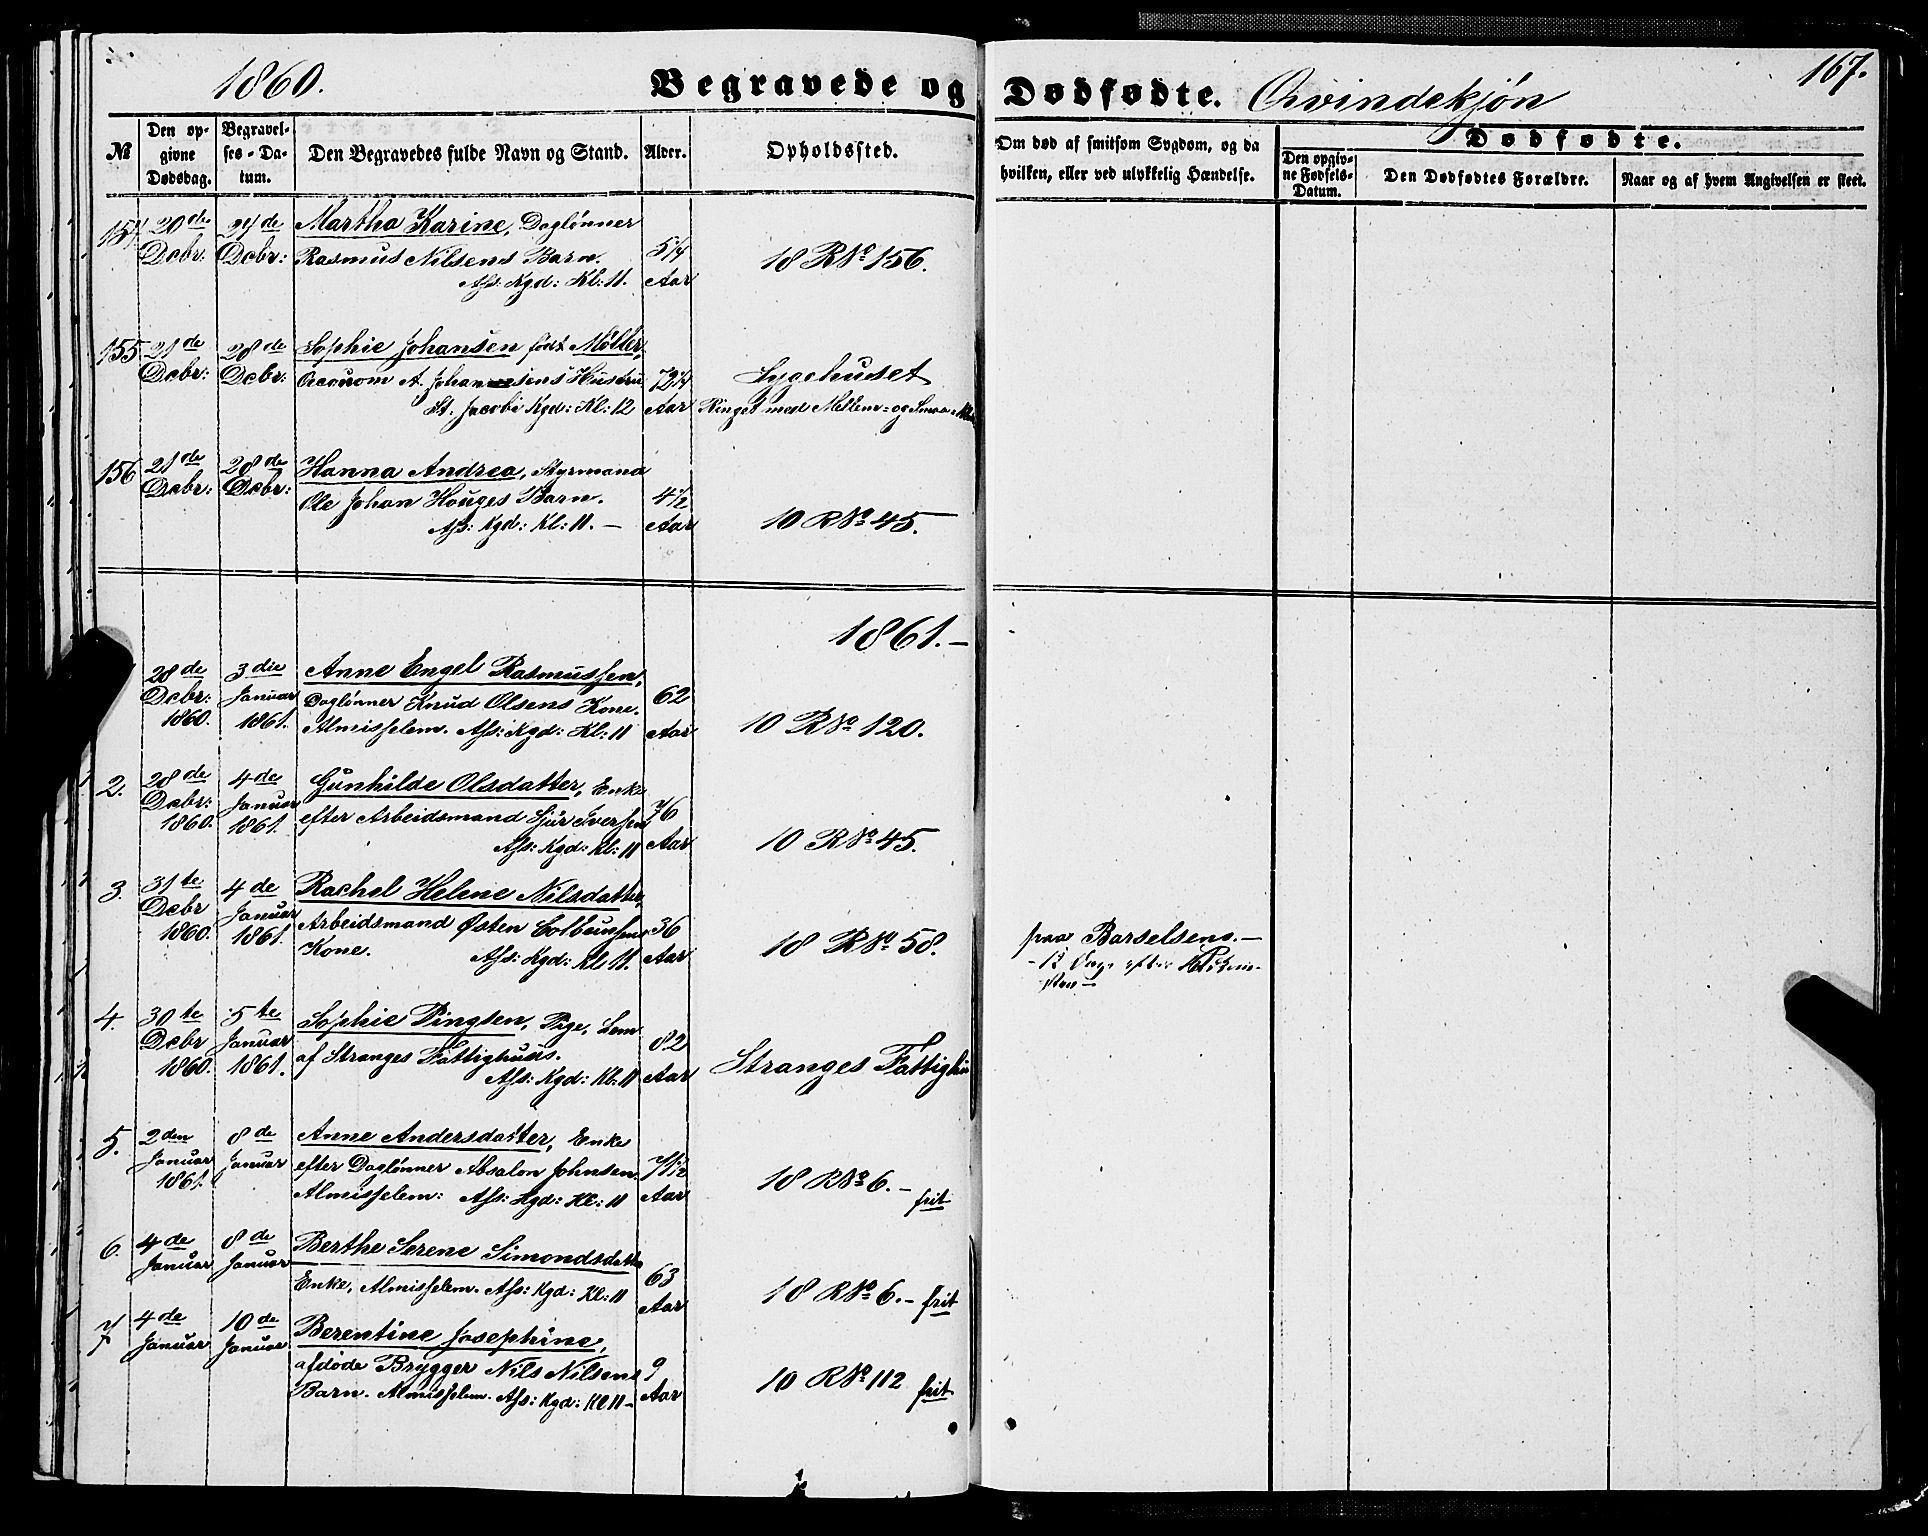 1860.
Begravede og Dødfødte. Qvindekjøn
167.
№
Den opgivne Dødsdag.
Begravelses-Datum.
Den Begravedes fulde Navn og Stand.
Alder.
Opholdssted.
Om død af smitsom Sygdom, og da hvilken, eller ved ulykkelig Hændelse.
Dødfødte.
Den opgivne Fødsels-Datum.
Den Dødfødtes Forældre.
Naar og af hvem Angivelsen er skeet.
154 20de 24de Martha Karine, Daglønner
Dcbr. Dcbr: Rasmus Nilsens Barn. 5/4 18 R № 156.
Ass: Kgd: Kl: 11. Aar
155 21de 28de Sophie Johansen født Møller,
Dcbr: Dcbr: Oeconom A. Johannesens Hustru 72 1/4 Sygehuset
St. Jacobi Kgd: Kl: 12 Aar Ringet med Mellem- og Smaa-
156 21de 28de Hanna Andrea, Styrmand
Dcbr: Dcbr: Ole Johan Houges Barn. 4 1/2
Ass: Kgd: Kl: 11. — Aar 10 R № 45.
1861. —
28de 3die Anne Engel Rasmussen,
Dcbr: Januar Daglønner Knud Olsens Kone. 62
1860. 1861. Almisselem. Ass: Kgd: Kl: 11 Aar 10 R № 120.
2. 28de 4de Gunhilde Olsdatter, Enke
Dcbr: Januar efter Arbeidsmand Sjur Iversen 76
1860. 1861. Ass: Kgd: Kl: 11 Aar 10 R № 45.
3. 31te 4de Rachel Helene Nilsdatter,
Dcbr Januar Arbeidsmand Østen 36 paa Barselseng. —
1860. 1861. Kone. Ass: Kgd: Kl 11. Aar 18 R № 58.
4. 30te 5te Sophie Pingsen, Pige, Lem
Dcbr Januar af Stranges Fattighuus. 82
1860. 1861. Ass: Kgd: Kl: 11 Aar Stranges Fattighu
5. 2den 8de Anne Andersdatter, Enke
Januar Januar efter Daglønner Absalon Johnsen. 71 1/2
1861. Almisselem: Ass: Kgd: Kl: 11 Aar 18 R № 6. — frit
6. 4de 8de Berthe Serene Simondsdatter
Januar Januar Enke, Almisselem. Ass: Kgd: Kl: 11 63 Aar 18 R № 6. — frit
7 4de 10de Berentine Josephine,
Januar Januar afdøde Brygger Nils Nilsens 9
Barn. Almisselem. Ass: Kgd: Kl 11 — Aar 10 R № 112 frit